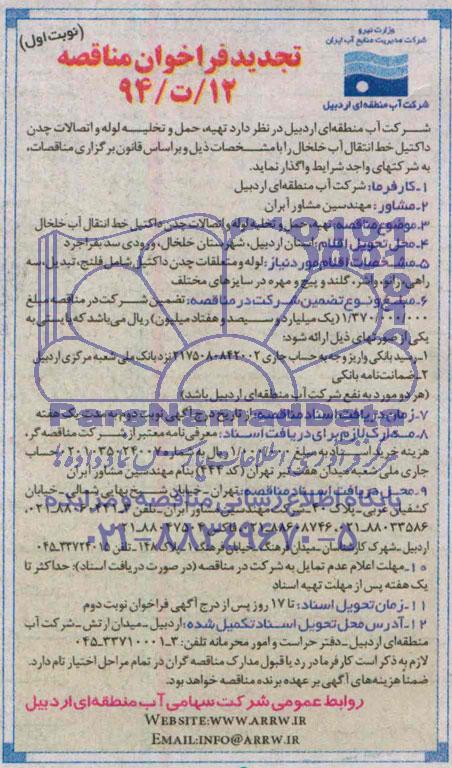 (نوبت اول)
وزارت نیرو
شرکت مدیریت منابع آب ایران
شرکت آب منطقه‌ای اردبیل
تجدید فراخوان مناقصه
۱۲/ت/۹۴
شرکت آب منطقه‌ای اردبیل در نظر دارد تهیه، حمل و تخلیه لوله و اتصالات چدن
داکتیل خط انتقال آب خلخال را با مشخصات ذیل و براساس قانون برگزاری مناقصات،
به شرکتهای واجد شرایط واگذار نماید.
۱-کارفرما: شرکت آب منطقه‌ای اردبیل
۲-مشاور: مهندسین مشاور آبران
۳-موضوع مناقصه: تهیه، حمل و تخلیه لوله و اتصالات چدن داکتیل خط انتقال آب خلخال
۴-محل تحویل اقلام: استان اردبیل، شهرستان خلخال، ورودی سد بفراجرد
۵-مشخصات اقلام مورد نیاز: لوله و متعلقات چدن داکتیل شامل فلنج، تبدیل، سه
راهی، زانو، واشر، گلند و پیچ و مهره در سایزهای مختلف
۶-مبلغ و نوع تضمین شرکت در مناقصه: تضمین شرکت در مناقصه مبلغ
۱/۳۷۰/۰۰۰/۰۰۰ (یک میلیارد و سیصد و هفتاد میلیون) ریال می‌باشد که بایستی به
یکی از صورتهای ذیل ارائه شود:
۱-رسید بانکی واریز وجه به حساب جاری ۲۱۷۵۰۸۰۸۴۲۰۰۲ نزد بانک ملی شعبه مرکزی اردبیل
۲-ضمانت‌نامه بانکی
(هر دو مورد به نفع شرکت آب منطقه‌ای اردبیل باشد)
۷-زمان دریافت اسناد مناقصه: از تاریخ درج آگهی نوبت دوم به مدت یک هفته
۸-مدارک لازم برای دریافت اسناد: معرفی‌نامه معتبر از شرکت مناقصه‌گر،
هزینه خرید اسناد به مبلغ ریال به شماره حساب
جاری ملی شعبه میدان هفت تیر تهران (کد ۴۴۳) بنام مهندسین مشاور آبران
۹-محل دریافت اسناد مناقصه: تهران-خیابان شیخ بهایی شمالی-خیابان
مهندسین مشاور آبران-تلفن
۰۲۱-۸۸۰۳۳۵۸۶
اردبیل-شهرک کارشناسان-میدان فرهنگ-خیابان فرهنگ۱-پلاک۱۴۸-تلفن ۳۳۷۲۴۰۱۵-۰۴۵
۱۰-مهلت اعلام عدم تمایل به شرکت در مناقصه (در صورت دریافت اسناد): حداکثر تا
یک هفته پس از مهلت تهیه اسناد
۱۱-زمان تحویل اسناد: تا ۱۷ روز پس از درج آگهی فراخوان نوبت دوم
۱۲-آدرس محل تحویل اسناد تکمیل شده: اردبیل-میدان ارتش-شرکت آب
منطقه‌ای اردبیل-دفتر حراست و امور محرمانه تلفن: ۳-۳۳۷۱۰۰۰۱-۰۴۵
لازم به ذکر است کارفرما در رد یا قبول مدارک مناقصه‌گران در تمام مراحل اختیار تام دارد.
ضمنا هزینه‌های آگهی بر عهده برنده مناقصه خواهد بود.
روابط عمومی شرکت سهامی آب منطقه‌ای اردبیل
WEBSITE:WWW.ARRW.IR
EMAIL:INFO@ARRW.IR
ParsNamadData
پایگاه اطلاع رسانی مناقصه و مزایده
۰۲۱-۸۸۳۴۹۶۷۰-۵